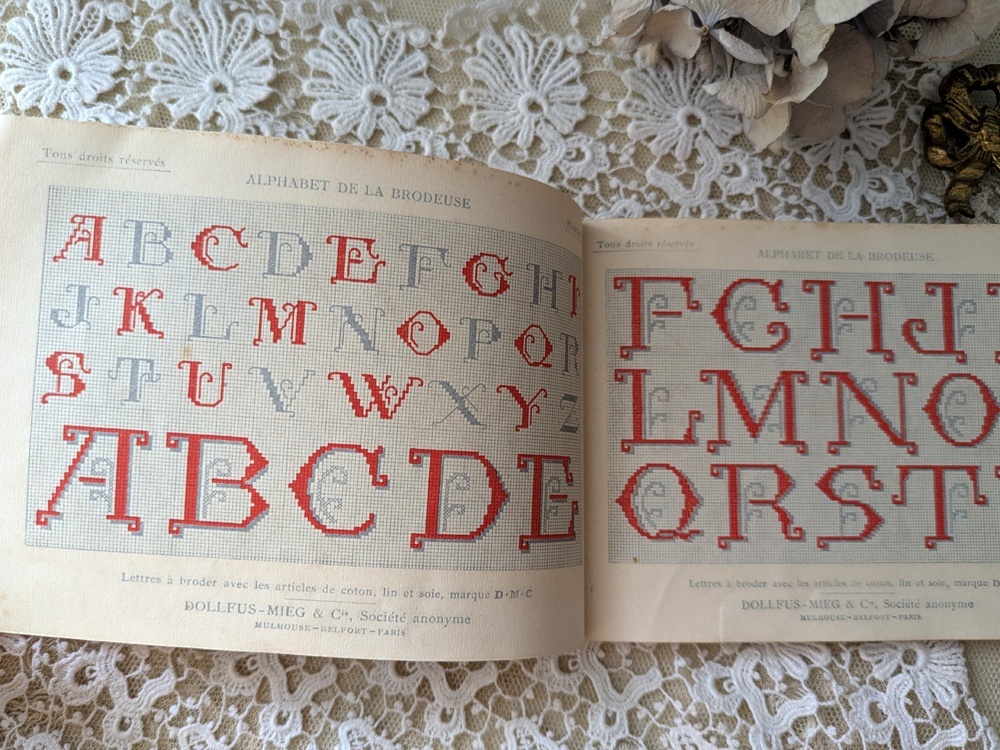 Tous droits réservés
ALPHABET DE LA BRODEUSE
A B C D E F G H I
J K L M N O P Q R
S T U V W X Y Z
A B C D E
Lettres à broder avec les articles de coton, lin et soie, marque D·M·C
DOLLFUS-MIEG & Cie, Société anonyme
MULHOUSE-BELFORT-PARIS
Tous droits réservés
ALPHABET DE LA BRODEUSE
F G H J
L M N O
Q R S T
Lettres à broder avec les articles de coton, lin et soie, marque D
DOLLFUS-MIEG & Cie, Société anonyme
MULHOUSE-BELFORT-PARIS